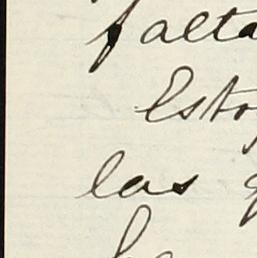 falta
Esto
las